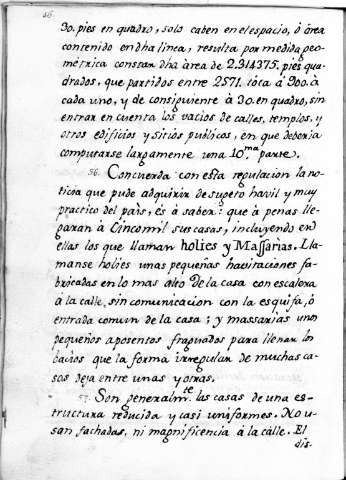 16.
30. pies en quadro, solo caben en el espacio, ò área
contenido en dha linea; resulta por medida geo-
métrica constar dha àrea de 2.314375. pies qua-
drados, que partidos entre 2571. toca à 900. à
cada uno, y de consiguiente à 30. en quadro, sin
entrar en cuenta los vacios de calles, templos, y
otros edificios y sitios publicos, en que deberia
computarse largamente una 10.ma parte.
56. Concuerda con esta regulacion la no-
ticia que pude adquirir de sugeto havil y muy
practico del paìs, es à saber: que à penas lle-
garan à Cincomil sus casas, incluyendo en
ellas los que llaman holies y Massarias. Lla-
manse holies unas pequeñas havitaciones fa-
bricadas en lo mas alto de la casa con escalera
à la calle, sin comunicacion con la esquifa, ò
entrada comun de la casa; y massarias unos
pequeños aposentos fraguados para llenar los
bacios que la forma irregular de muchas ca-
sas deja entre unas y otras.
57. Son generalm.te las casas de una es-
tructura reducida y casi uniformes. No u-
san fachadas, ni magnificencia à la calle. El
dis-